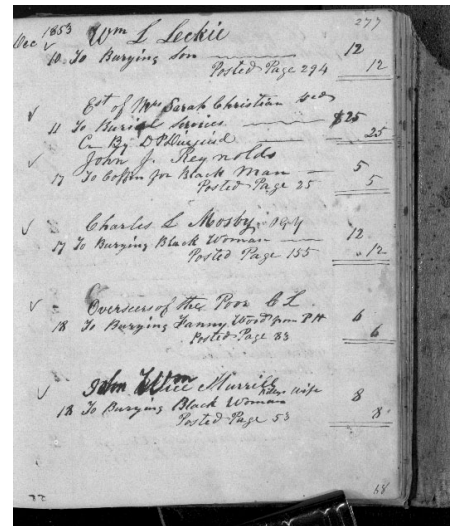 277
Dec 1853 Wm L Leckie
10 To Burying Son 12
Posted Page 294 12
Est of Mrs Sarah Christian Decd
11 To Burial Services $25
Cr By D P Diuguid 25
John J. Reynolds
17 To Coffin for Black Man 5
Posted Page 25 5
Charles L Mosby
17 To Burying Black Woman 12
Posted Page 155 12
Overseers of the Poor C L
18 To Burying Fanny Wood from P H 6
Posted Page 83 6
Murrill
18 To Burying Black Woman wife 8
Posted Page 53 8